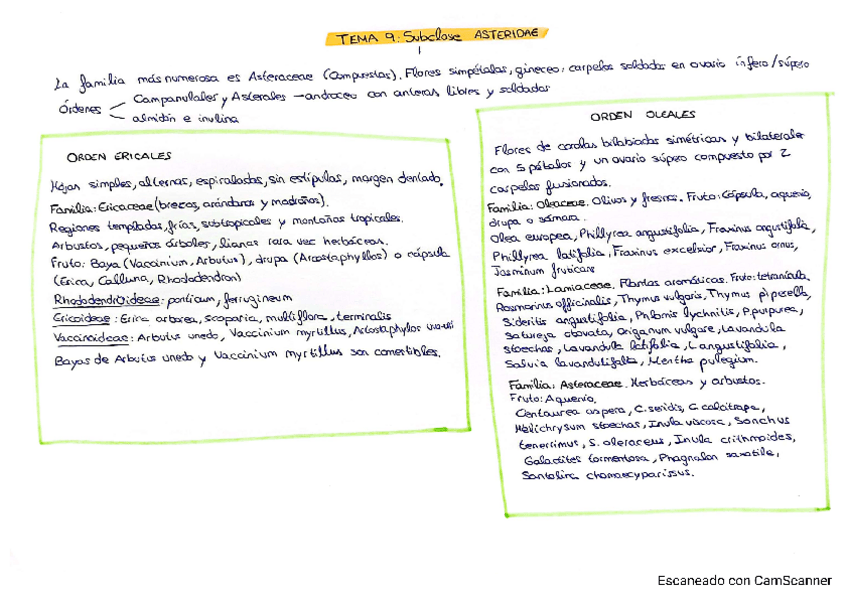 TEMA 9: Subclase ASTERIDAE
La familia más numerosa es Asteraceae (Compuestas). Flores simpétalas, gineceo: carpelos soldados en ovario ínfero/súpero
Órdenes
Campanulales y Asterales → androceo con anteras libres y soldadas
almidón e inulina
ORDEN ERICALES
Hojas simples, alternas, espiraladas, sin estípulas, margen dentado.
Familia: Ericaceae (brezos, arándanos y madroños).
Regiones templadas, frías, subtropicales y montañas tropicales.
Arbustos, pequeños árboles, lianas rara vez herbáceas.
Fruto: Baya (Vaccinium, Arbutus), drupa (Arcostaphyllos) o cápsula
(Erica, Calluna, Rhododendron)
Rhododendrioideae: ponticum, ferrugineum
Ericoideae: Erica arborea, scoparia, multiflora, terminalis
Vaccinoideae: Arbutus unedo, Vaccinium myrtillus, Arcostaphyllos uva-ursi
Bayas de Arbutus unedo y Vaccinium myrtillus son comestibles.
ORDEN OLEALES
Flores de corolas bilabiadas simétricas y bilaterales
con 5 pétalos y un ovario súpero compuesto por 2
carpelos fusionados.
Familia: Oleaceae. Olivos y fresnos. Fruto: Cápsula, aquenio,
drupa o sámara.
Olea europea, Phillyrea angustifolia, Fraxinus angustifolia,
Phillyrea latifolia, Fraxinus excelsior, Fraxinus ornus,
Jasminum fruticans
Familia: Lamiaceae. Plantas aromáticas. Fruto: tetranúcula.
Rosmarinus officinalis, Thymus vulgaris, Thymus piperella,
Sideritis angustifolia, Phlomis lychnitis, P. purpurea,
Satureja obovata, Origanum vulgare, Lavandula
stoechas, Lavandula latifolia, L. angustifolia,
Salvia lavandulifolia, Mentha pulegium.
Familia: Asteraceae. Herbáceas y arbustos.
Fruto: Aquenio.
Centaurea aspera, C. seridis, C. calcitrapa,
Helichrysum stoechas, Inula viscosa, Sonchus
tenerrimus, S. oleraceus, Inula crithmoides,
Galactites tomentosa, Phagnalon saxatile,
Santolina chamaecyparissus.
Escaneado con CamScanner